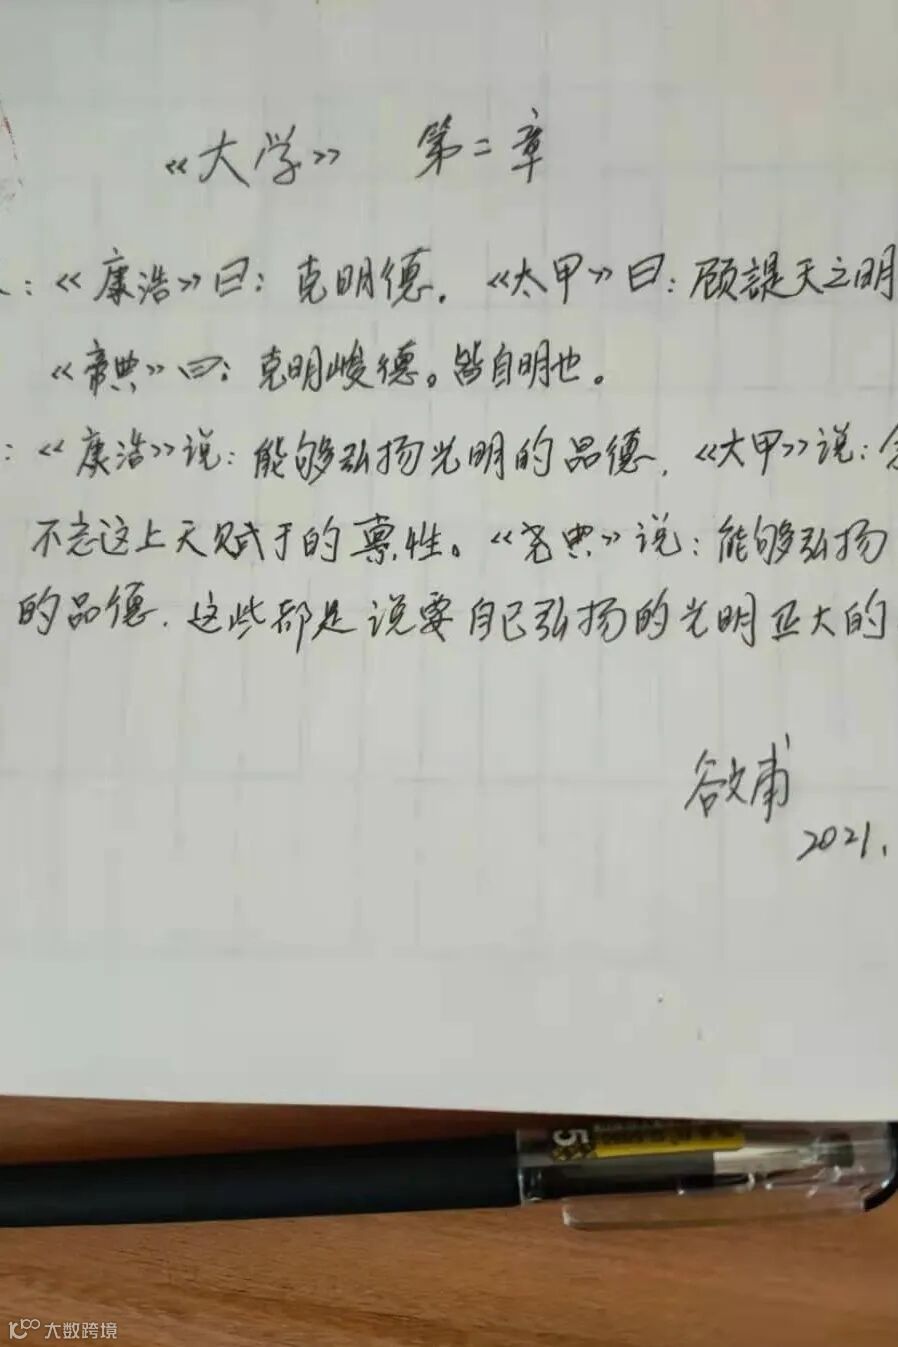 《大学》 第二章
:《康浩》曰:克明德。《太甲》曰:顾諟天之明
《帝典》曰:克明峻德。皆自明也。
:《康浩》说:能够弘扬光明的品德,《大甲》说:念
不忘这上天赋于的禀性。《尧典》说:能够弘扬
的品德,这些都是说要自己弘扬的光明正大的
2021.
5
大数跨境